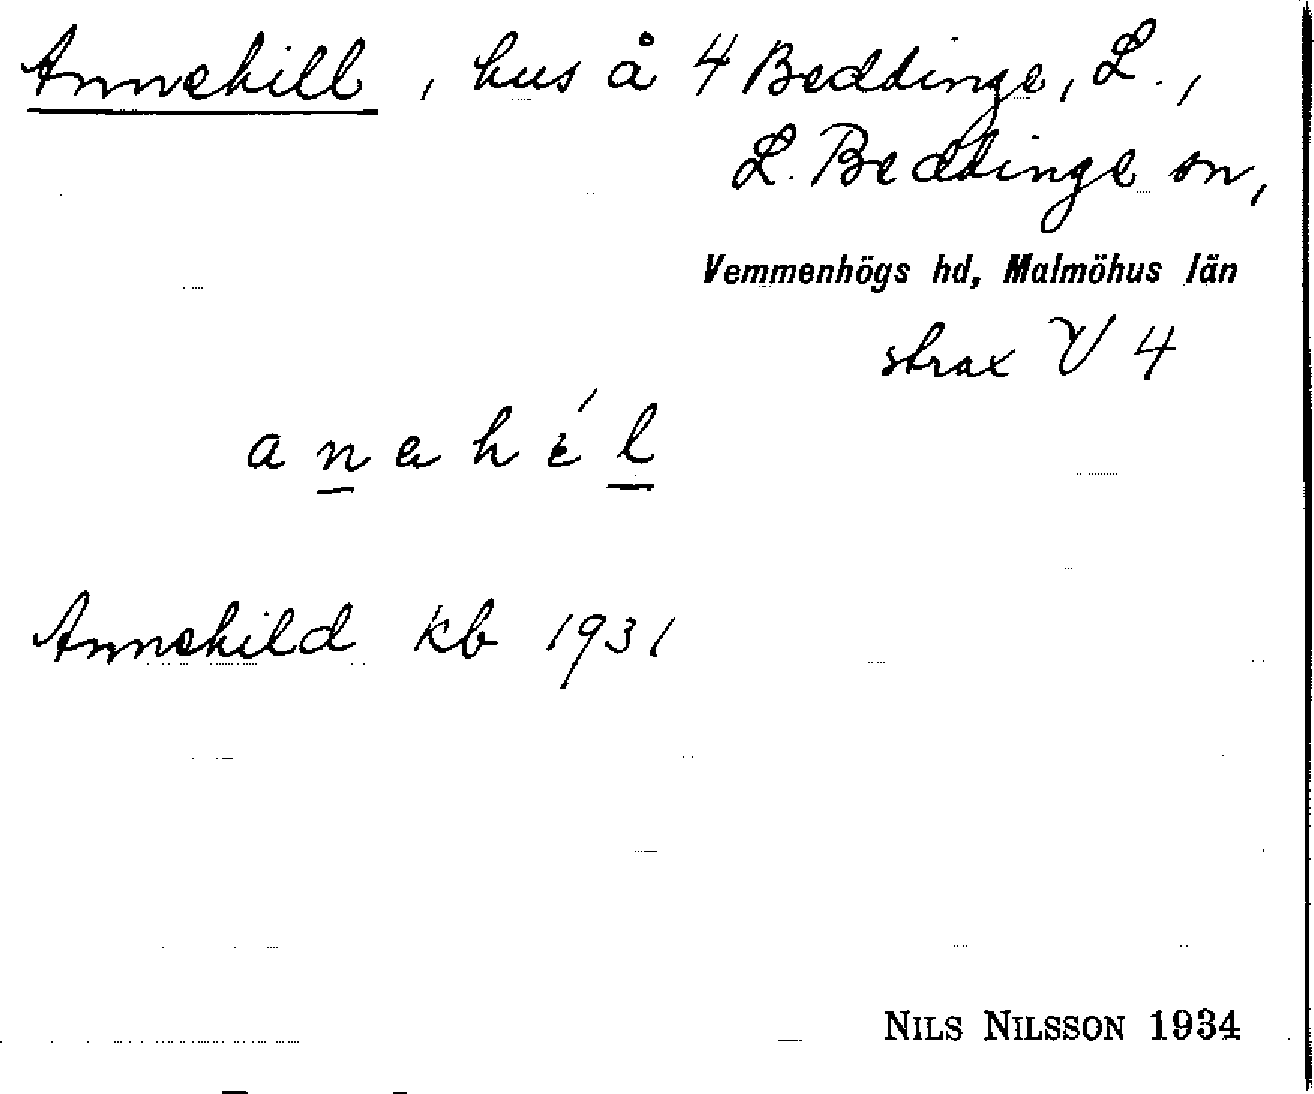 Annehill, hus å 4 Beddinge, L.,
L. Beddinge sn,
Vemmenhögs hd, Malmöhus län
strax V 4
anahél
Annehild kb 1931
NILS NILSSON 1934